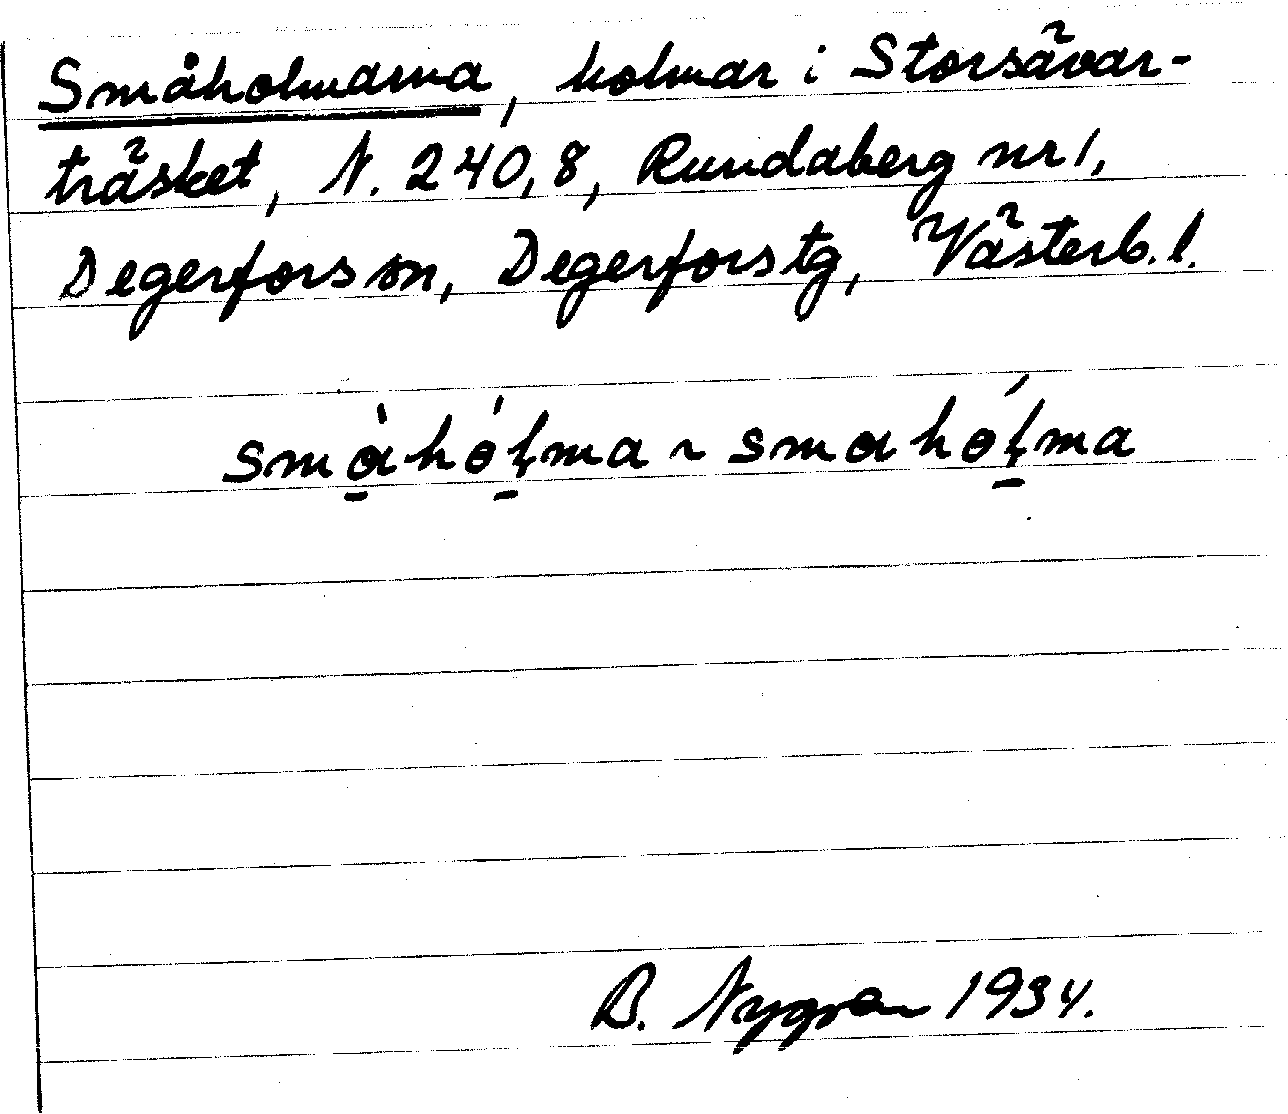 Småholmarna, holmar i Storsävar-
träsket, N. 240,8, Rundaberg nr 1,
Degerfors sn, Degerfors tg, Västerb. l.
småhólma ~ smahólma
B. Nygren 1934.